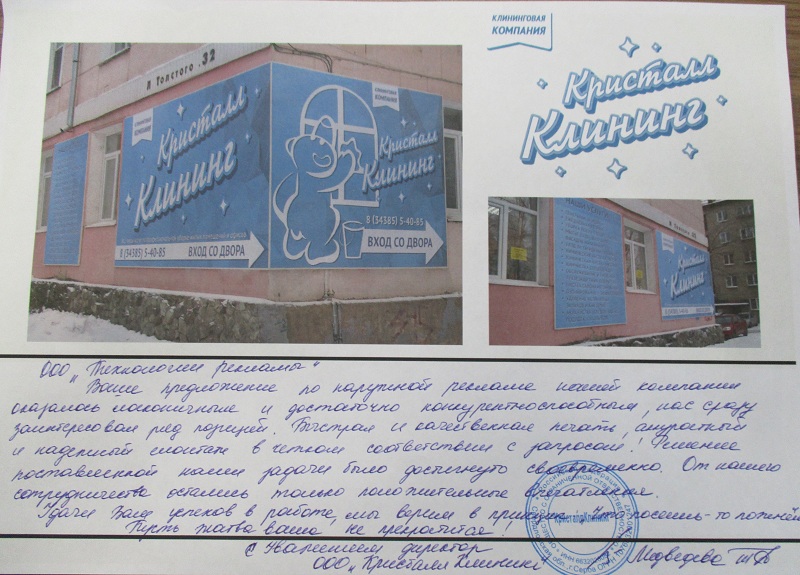 КЛИНИНГОВАЯ
КОМПАНИЯ
Кристалл
Клининг
Л Толстого .32
КЛИНИНГОВАЯ
КОМПАНИЯ
Кристалл
Клининг
8 (34385) 5-40-85 ВХОД СО ДВОРА
КЛИНИНГОВАЯ
КОМПАНИЯ
Кристалл
Клининг
8 (34385) 5-40-85
ВХОД СО ДВОРА
Л Толстого
Кристалл
Клининг
ООО "Технологии рекламы"
Ваше предложение по наружной рекламе нашей компании
оказалось лаконичным и достаточно конкурентноспособным, нас сразу
заинтересовал ряд позиций. Быстрая и качественная печать, аккуратный
и надежный монтаж в четком соответствии с запросом! Решение
поставленной нами задачи было достигнуто своевременно. От нашего
сотрудничества остались только положительные впечатления.
Удачи Вам, успехов в работе, мы верим в принцип "Что посеешь-то пожнёшь"
Пусть жатва ваша не прекратится!
С Уважением директор
ООО "Кристалл Клининг" Медведева
КристаллКлининг